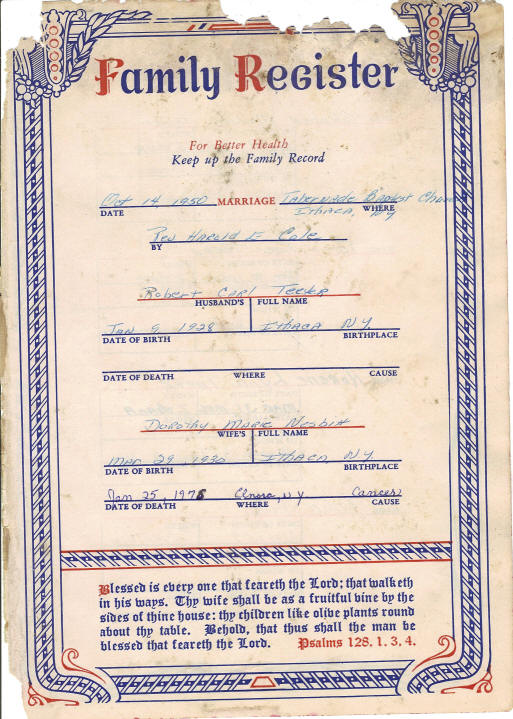 Family Register
For Better Health
Keep up the Family Record
Oct 14, 1950 MARRIAGE Tabernacle Baptist
DATE Ithaca, NY WHERE
Rev Harold E Cole
BY
Robert Carl Teeter
HUSBAND'S FULL NAME
Jan 9 1928 Ithaca N.Y.
DATE OF BIRTH BIRTHPLACE
DATE OF DEATH WHERE CAUSE
Dorothy Marie Nesbitt
WIFE'S FULL NAME
Mar 29, 1930 Ithaca, N.Y.
DATE OF BIRTH BIRTHPLACE
Jan 25, N.Y. Cancer
DATE OF DEATH WHERE CAUSE
Blessed is every one that feareth the Lord; that walketh
in his ways. Thy wife shall be as a fruitful vine by the
sides of thine house: thy children like olive plants round
about thy table. Behold, that thus shall the man be
blessed that feareth the Lord. Psalms 128. 1. 3, 4.